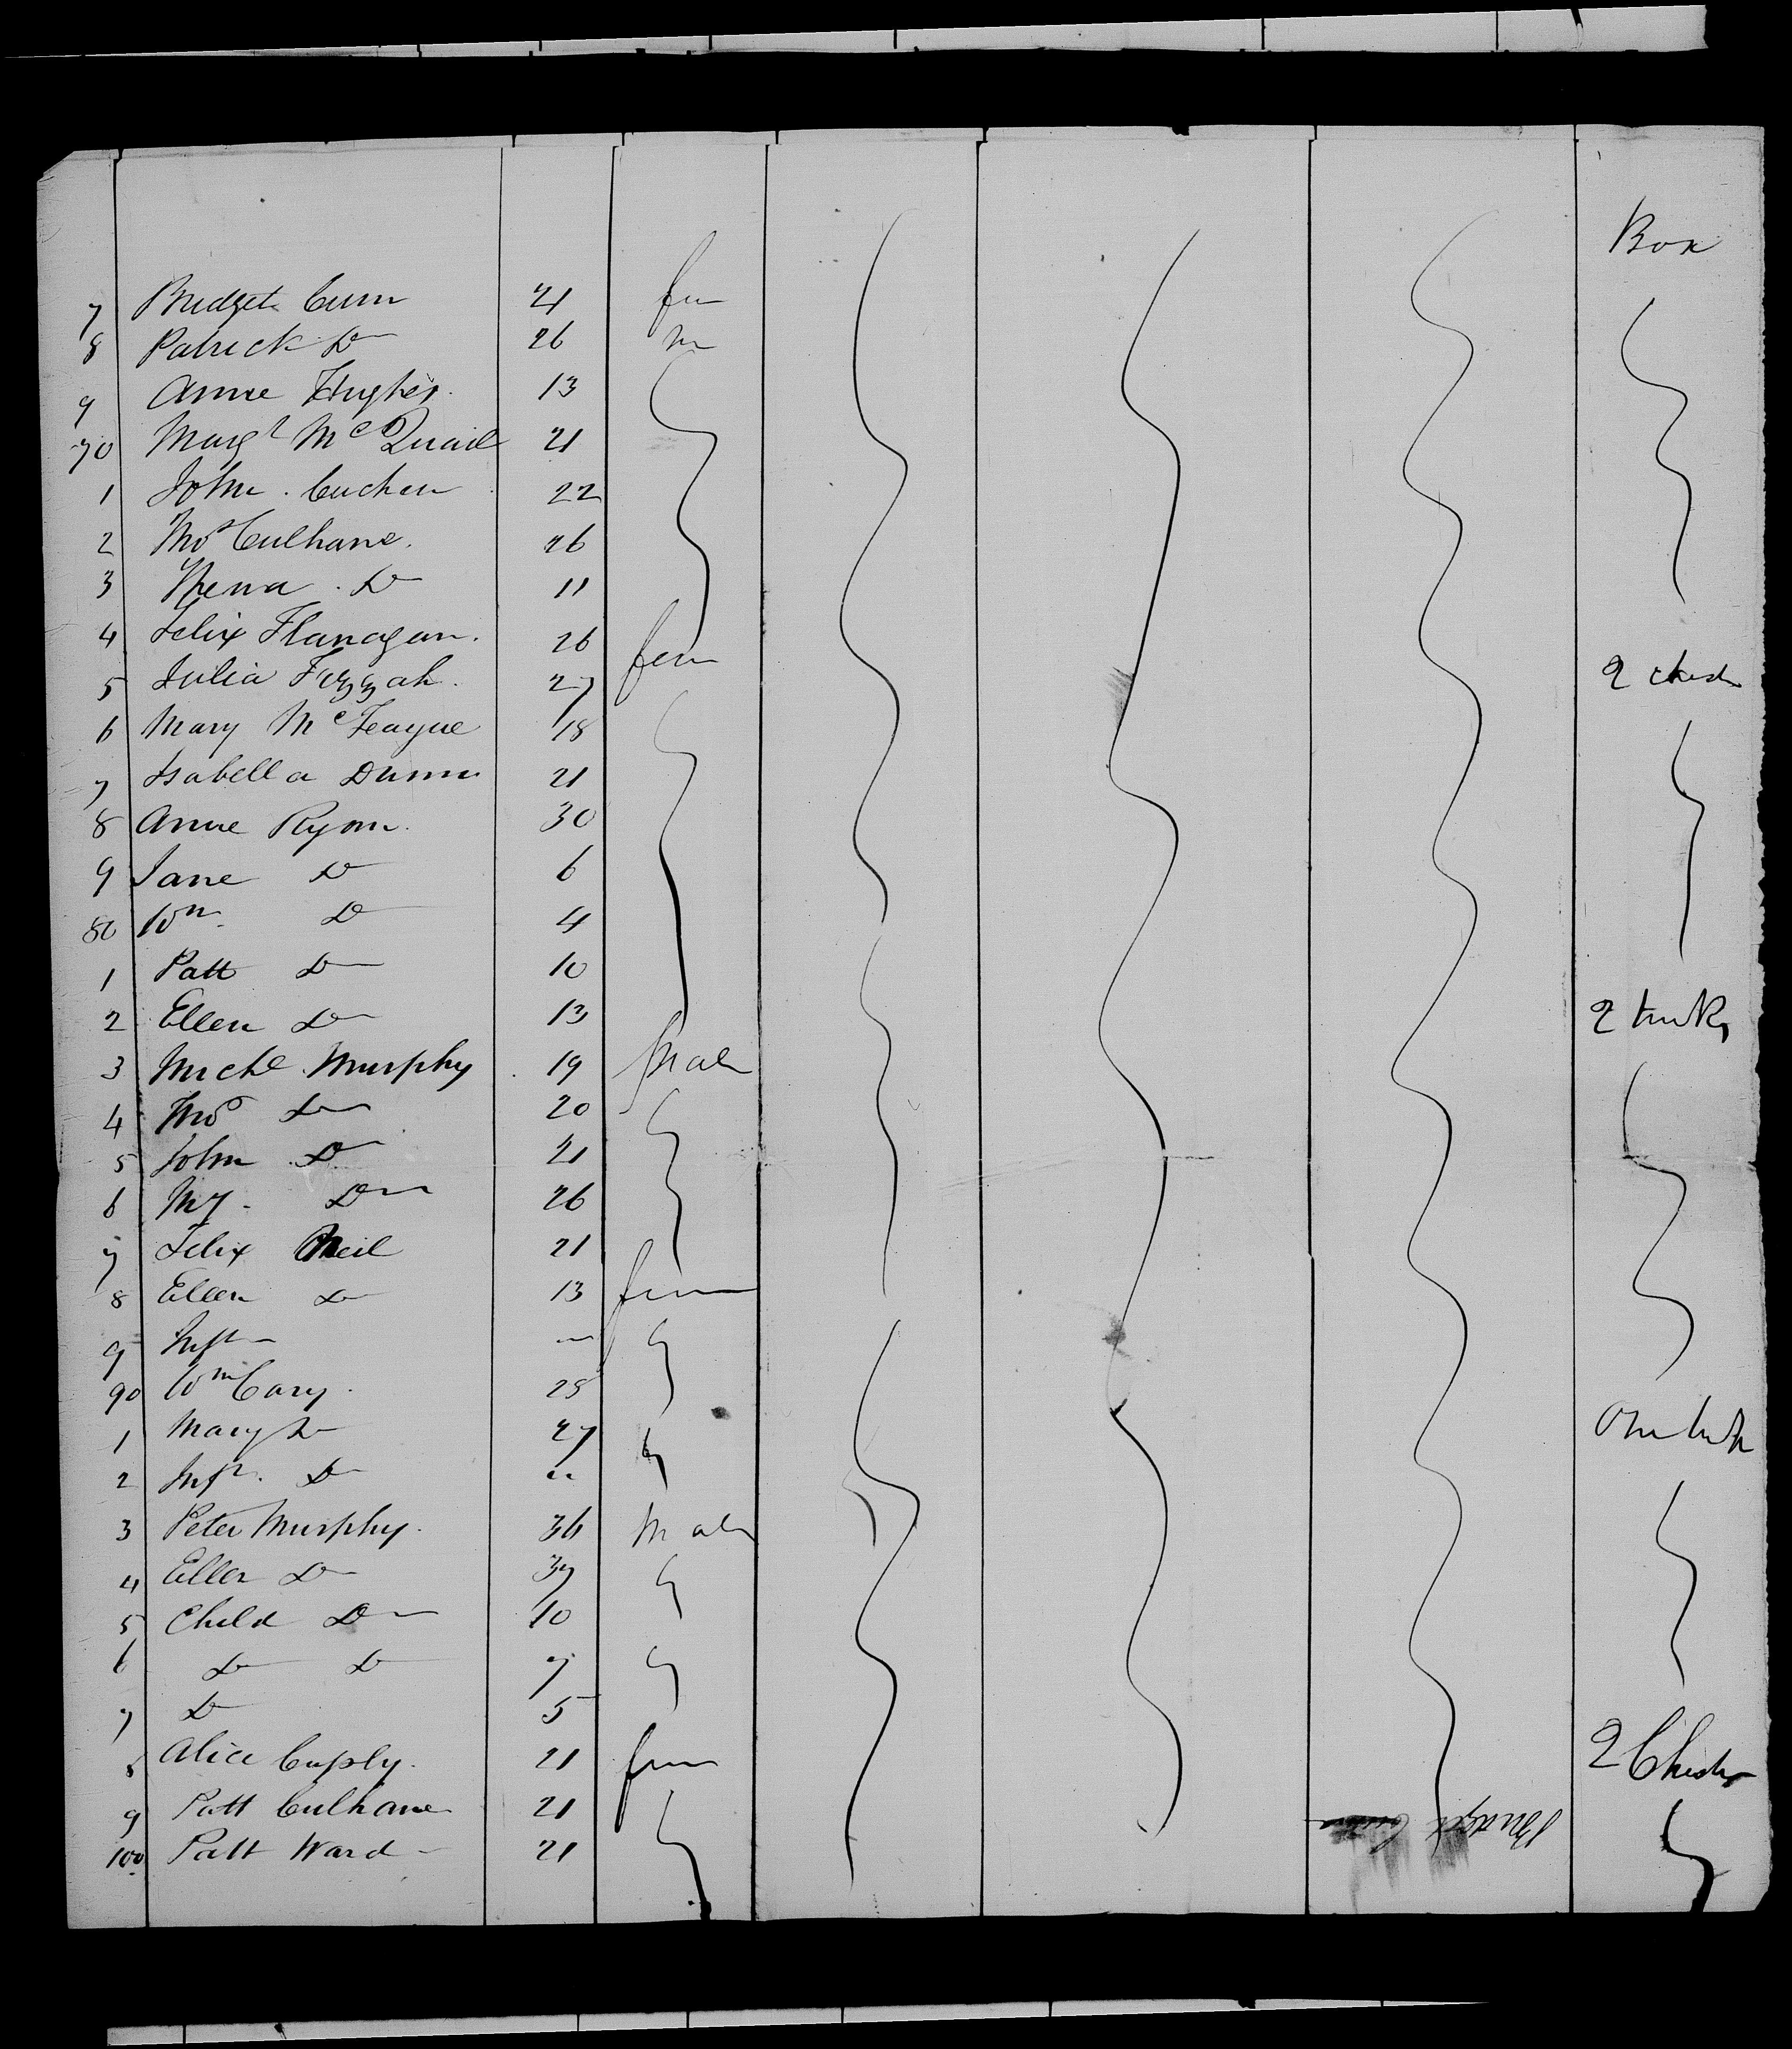 Box
7 Bridget Curn 21 fem
8 Patrick Do 26 m
9 Anne Hughes. 13
70 Margt McQuaid 21
1 John. Cuchen 22
2 Thos Culhane. 26
3 Do 11
4 Felix Flanagan. 26
5 Julia 27 fem 2 chests
6 Mary McTeague 18
7 Isabella Dunn 21
8 Anne Ryan. 30
9 Jane Do 6
80 Wm. Do 4
1 Patt Do 10
2 Ellen Do 13 2 trunks
3 Michl Murphy 19 Male
4 Thos Do 20
5 John Do 21
6 My. Do 26
7 Felix Neil 21
8 Ellen Do 13 fem
9 Inft —
90 Wm Cary. 25
1 Mary Do 27 One trunk
2 Inft. Do "
3 Peter Murphy. 36 Male
4 Ellen Do 37
5 Child Do 10
6 Do Do 7
7 Do 5
8 Alice 21 fem 2 Chests
9 Patt Culhane 21
100 Patt Ward 21
Bridget